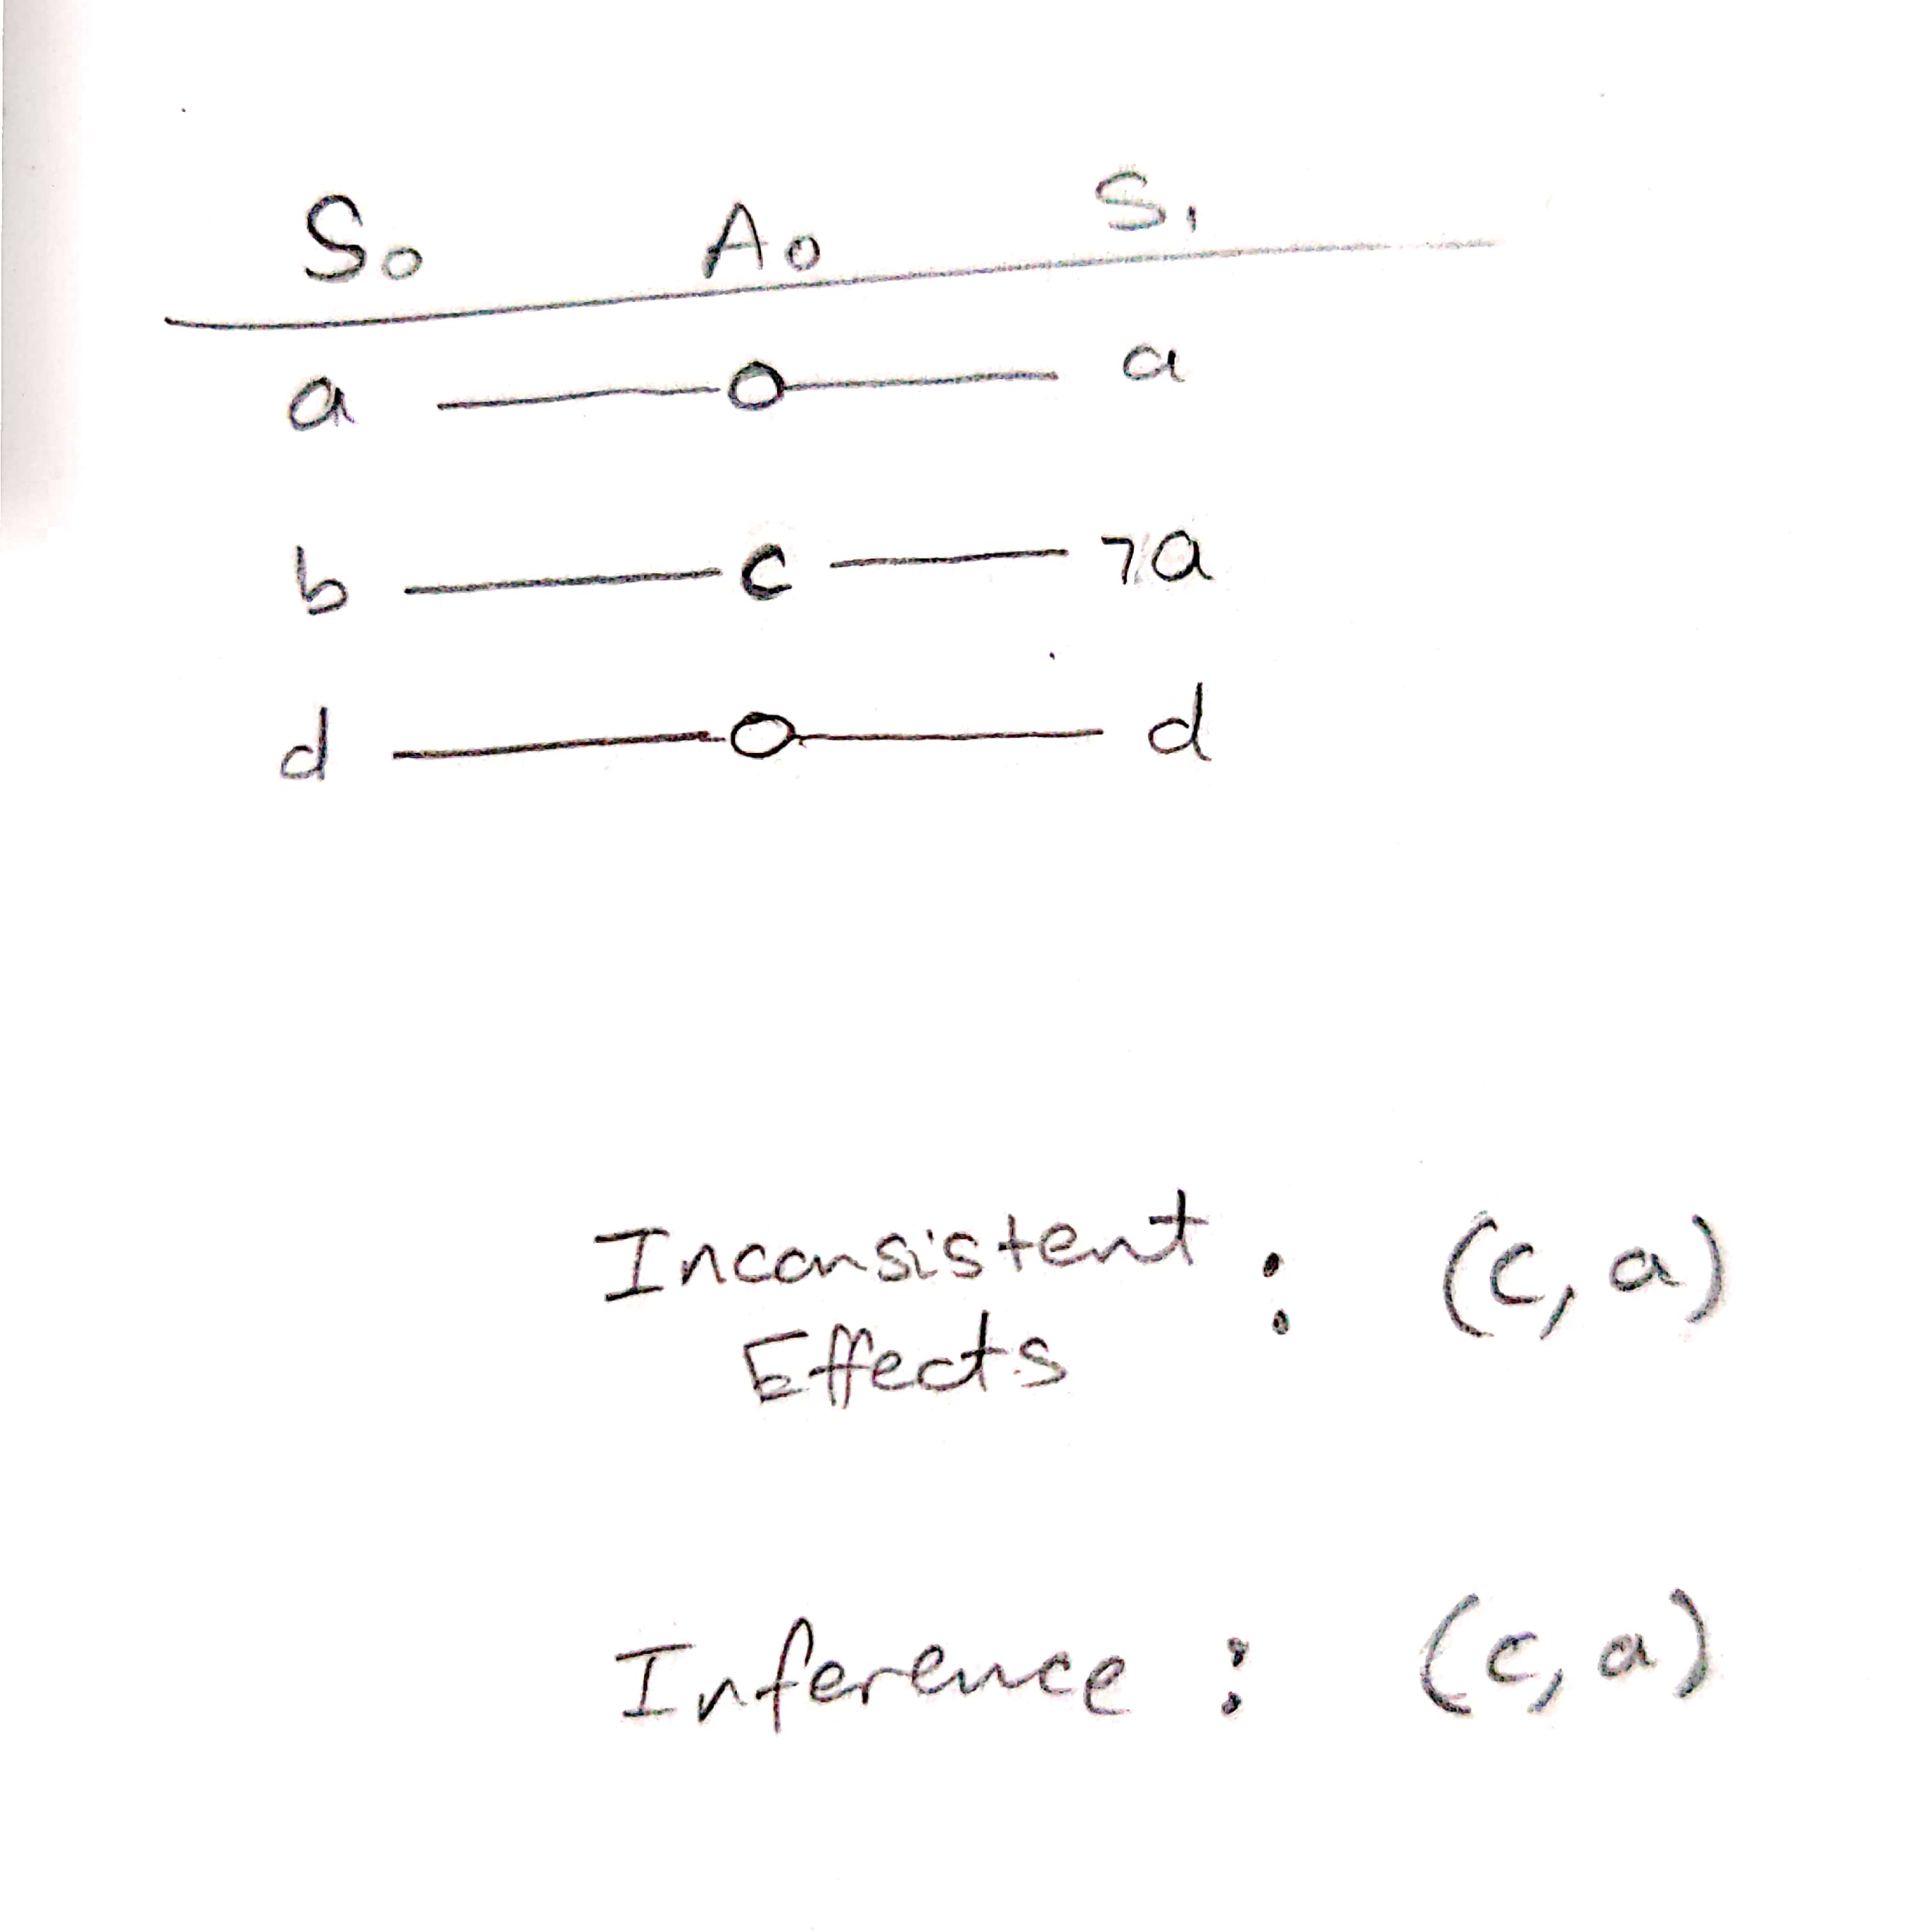 So Ao S1
a a
b c ¬a
d d
Inconsistent : (c, a)
Effects
Inference : (c, a)